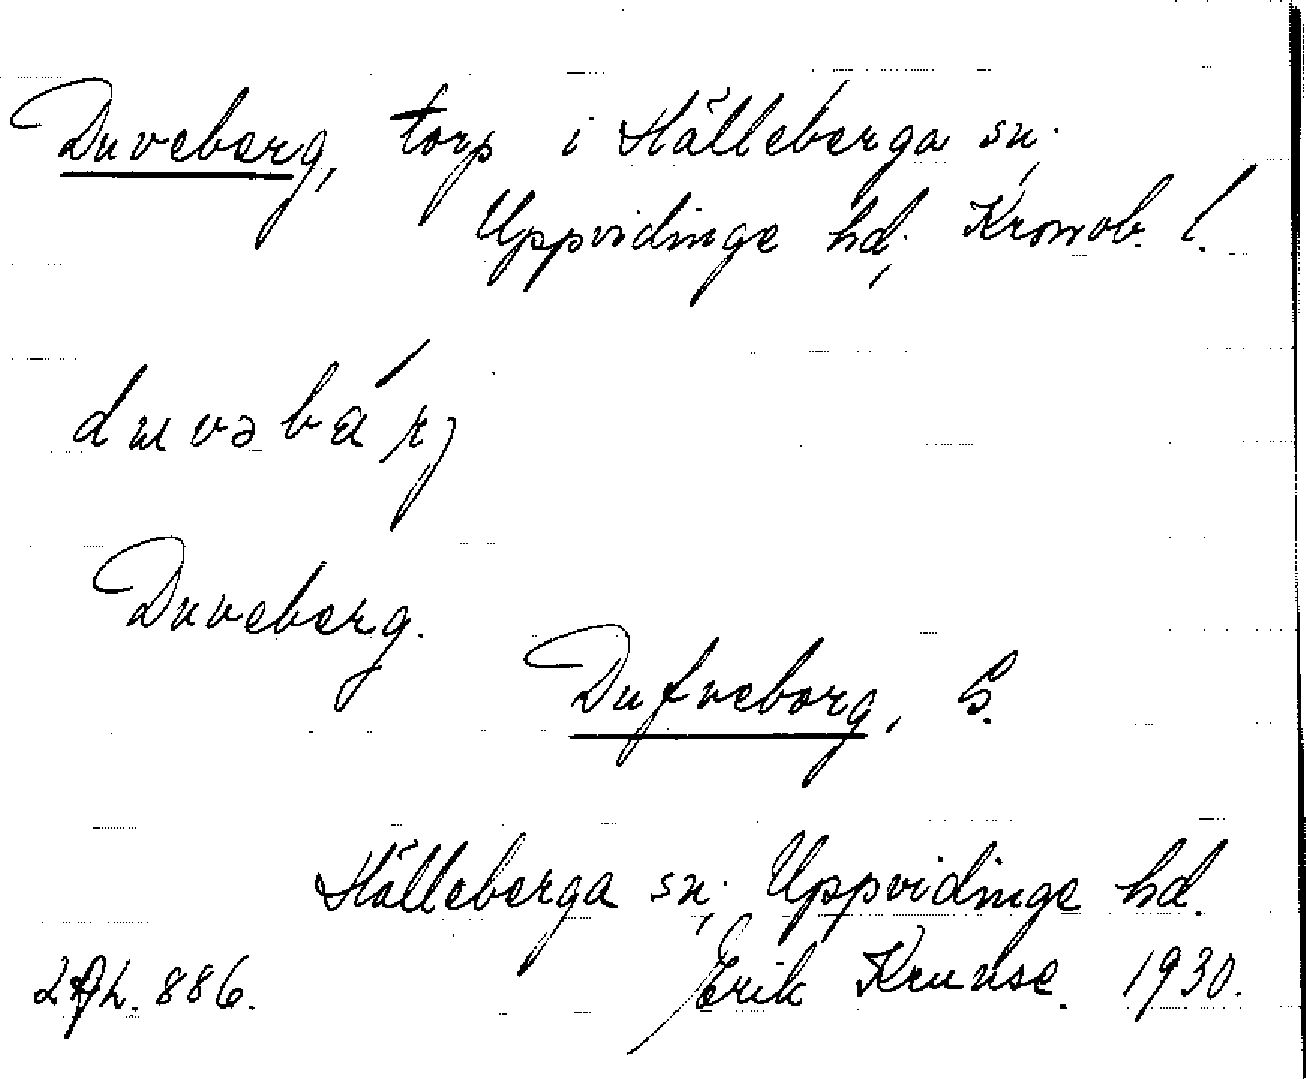 Duveberg, torp i Hälleberga sn.,
Uppvidinge hd., Kronob. l.
duvəbárj
Duveberg.
Dufveberg, G.
Hälleberga sn., Uppvidinge hd.
886. Erik Kruuse. 1930.